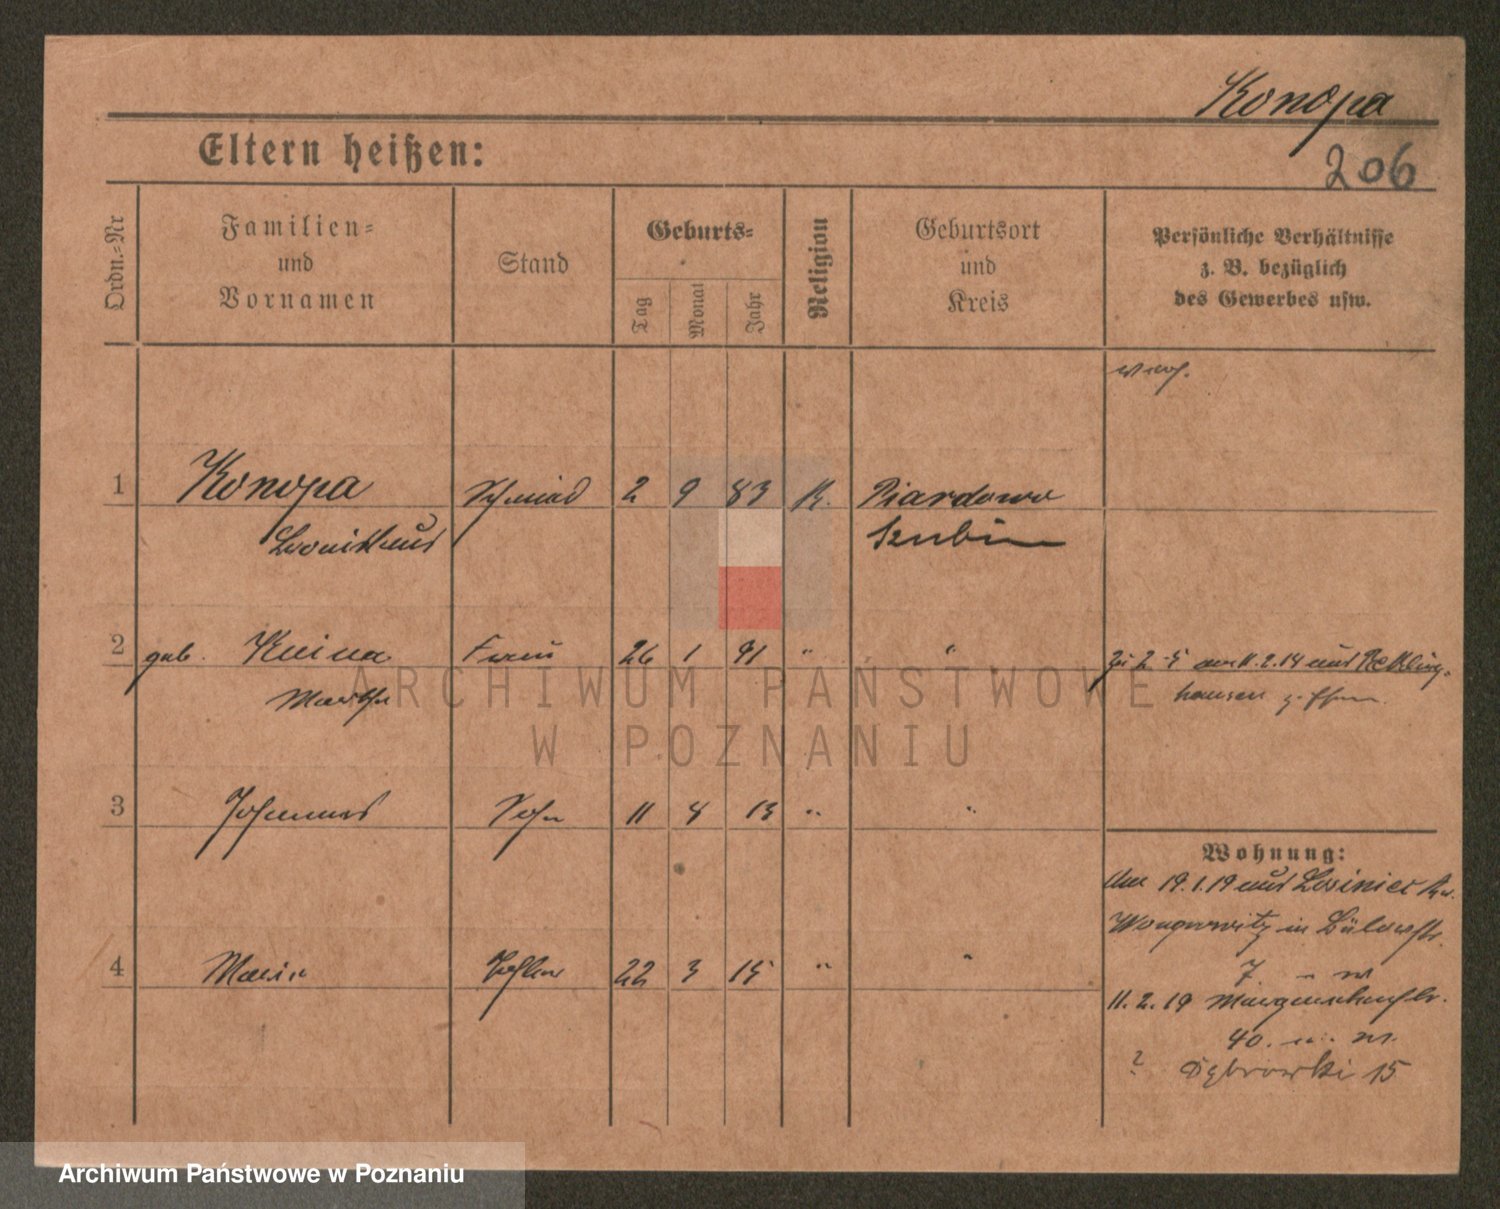 Konopa
Eltern heißen:
206
Ordn.-Nr
Familien-
und
Vornamen
Stand
Geburts-
Tag
Monat
Jahr
Religion
Geburtsort
und
Kreis
Persönliche Verhältnisse
z. B. bezüglich
des Gewerbes usw.
1 Konopa Schmied 2 9 83 K. Piardowo
Szubin
2 geb. Knina Frau 26 1 91 " " Zu 2-5 am 11.2.14 aus Recklinghausen
Martha
3 Johannes Sohn 11 8 13 " "
4 Maria Tochter 22 3 15 " "
Wohnung:
Am 19.1.19 aus
in Bülowstr.
7
11.2.19
40.
? Dąbrowski 15
ARCHIWUM PAŃSTWOWE
W POZNANIU
Archiwum Państwowe w Poznaniu